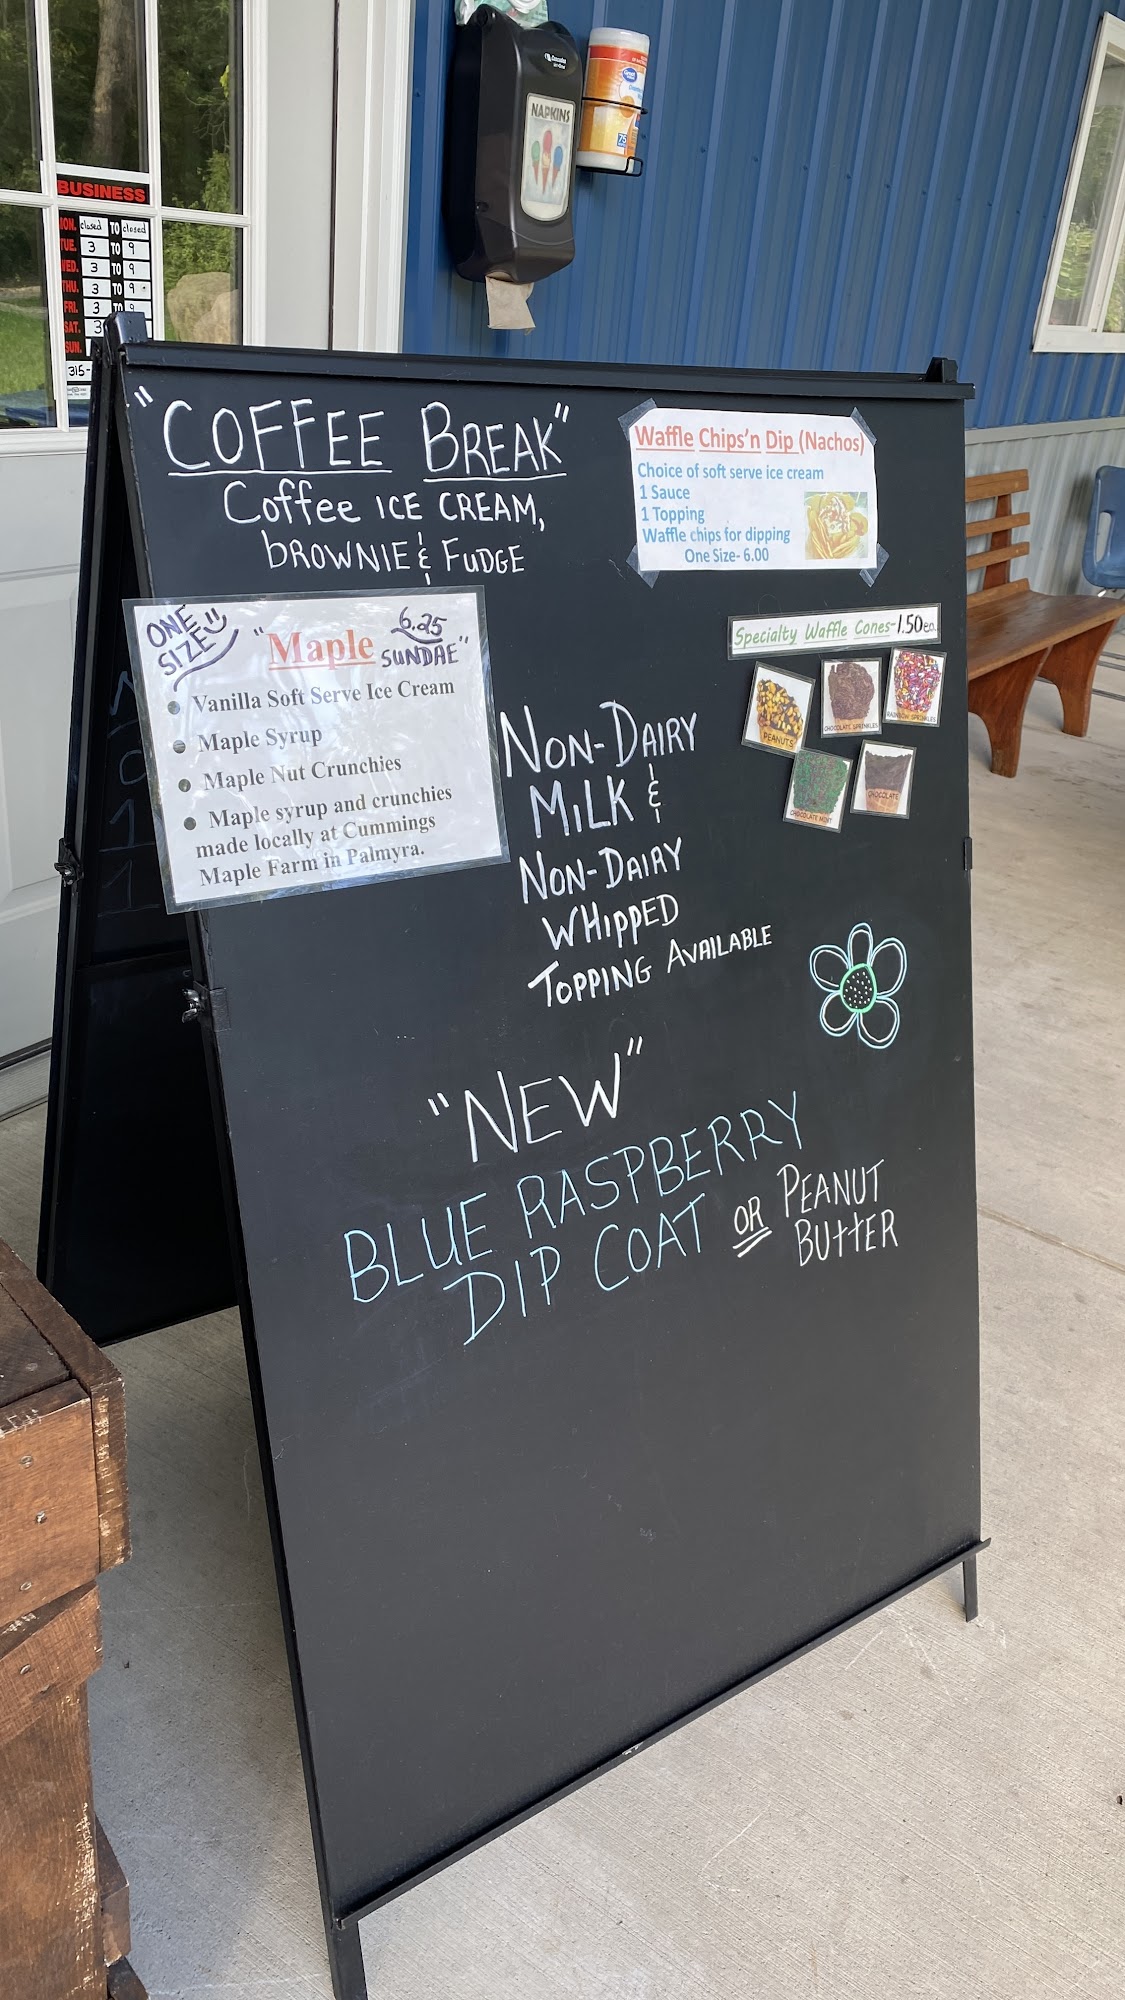 NAPKINS
75
BUSINESS
MON. closed TO closed
TUE. 3 TO 9
WED. 3 TO 9
THU. 3 TO 9
FRI. 3 TO 9
SAT. 3
SUN.
315-
"COFFEE BREAK"
Coffee ICE CREAM,
BROWNIE & FUDGE
Waffle Chips'n Dip (Nachos)
Choice of soft serve ice cream
1 Sauce
1 Topping
Waffle chips for dipping
One Size- 6.00
ONE SIZE
"Maple SUNDAE"
6.25
• Vanilla Soft Serve Ice Cream
• Maple Syrup
• Maple Nut Crunchies
• Maple syrup and crunchies
made locally at Cummings
Maple Farm in Palmyra.
Specialty Waffle Cones-1.50ea.
PEANUTS
CHOCOLATE SPRINKLES
RAINBOW SPRINKLES
CHOCOLATE MINT
CHOCOLATE
NON-DAIRY
MILK &
NON-DAIRY
WHIPPED
TOPPING AVAILABLE
"NEW"
BLUE RASPBERRY
DIP COAT OR PEANUT
BUTTER